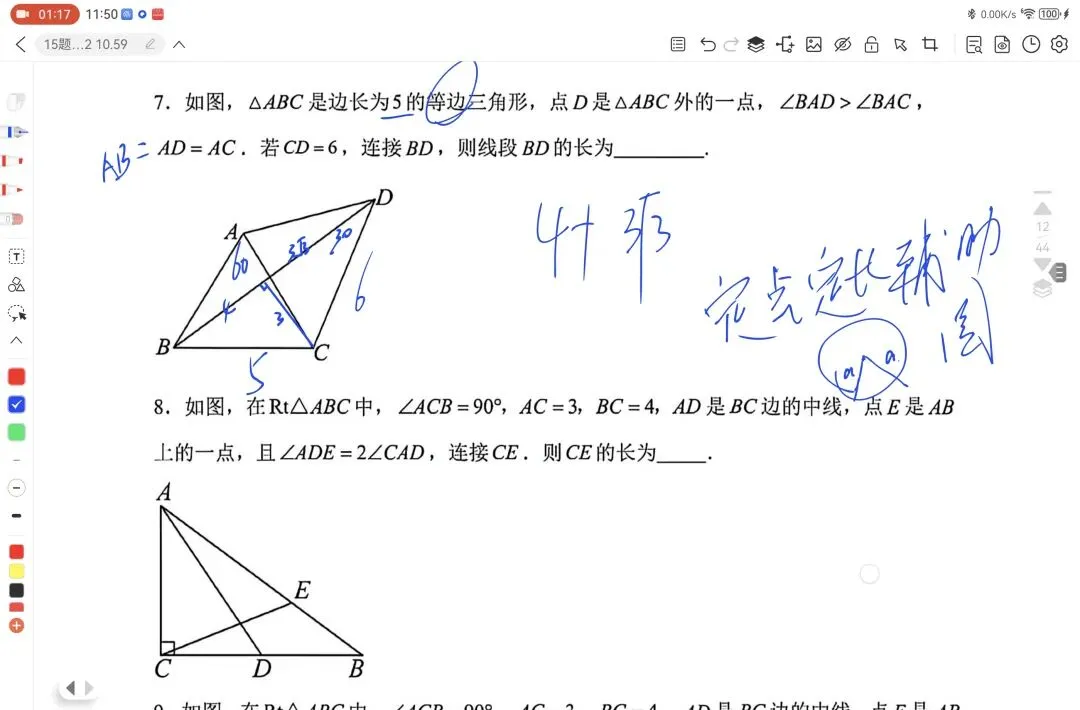 01:17 11:50 0.00K/s 100
15题...2 10.59
7. 如图，△ABC 是边长为5的等边三角形，点D是△ABC外的一点，∠BAD＞∠BAC，
AB= AD=AC．若CD=6，连接BD，则线段BD的长为________.
A D
60 3√3 30
4 3 6
B C
5
4+3√3
定点定长辅助
圆
a a
12
44
8. 如图，在Rt△ABC中，∠ACB=90°，AC=3，BC=4，AD是BC边的中线，点E是AB
上的一点，且∠ADE=2∠CAD，连接CE．则CE的长为_____.
A
E
C D B